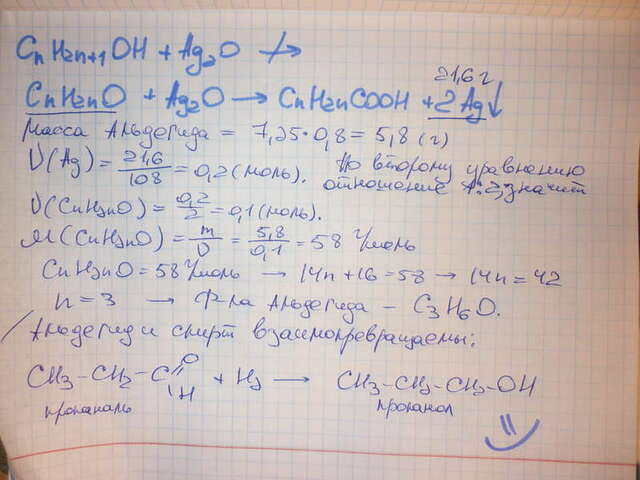 CnH2n+1OH + Ag2O ↛
21,6 г
CnH2nO + Ag2O → CnH2nCOOH + 2Ag↓
Масса Альдегида = 7,25·0,8 = 5,8 (г)
ν(Ag) = 21,6/108 = 0,2 (моль). По второму уравнению
отношение 1:2, значит
ν(CnH2nO) = 0,2/2 = 0,1 (моль).
M(CnH2nO) = m/ν = 5,8/0,1 = 58 г/моль
CnH2nO = 58 г/моль → 14n+16=58 → 14n=42
n=3 → Ф-ла Альдегида – C3H6O.
Альдегид и спирт взаимопревращаемы:
CH3–CH2–C=O–H + H2 → CH3–CH2–CH2–OH
пропаналь пропанол